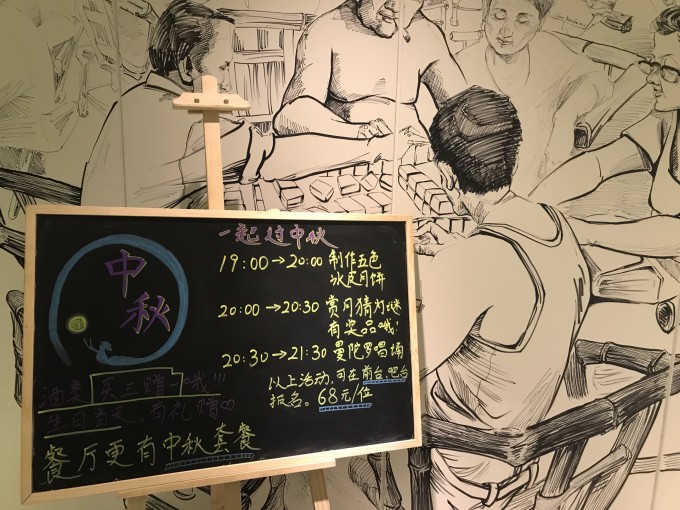 中秋
一起过中秋
19:00→20:00 制作五色
冰皮月饼
20:00→20:30 赏月猜灯谜
有奖品哦!
20:30→21:30 曼陀罗唱诵
以上活动,可在前台、吧台
报名。68元/位
酒类买一赠一哦!!!
生日当天,有礼赠
餐厅更有中秋套餐